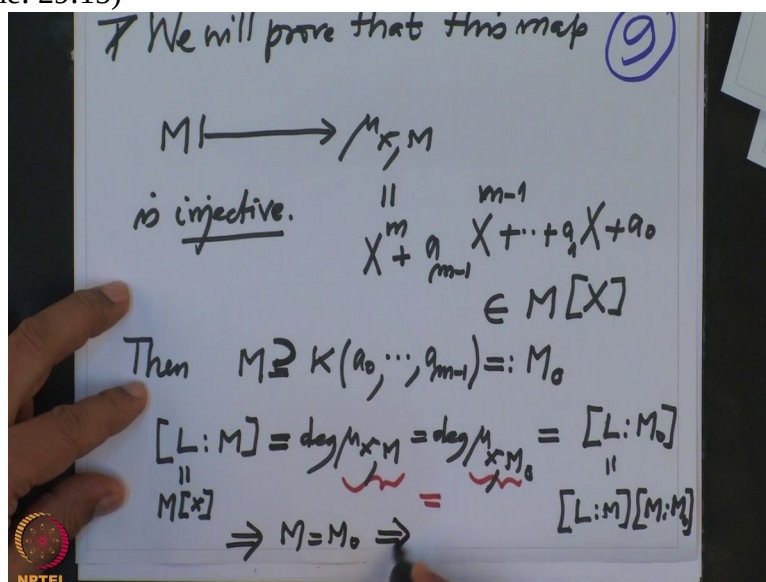 We will prove that this map 9
M ⟼ μ_{x,M}
is injective. || X^m + a_{m-1} X^{m-1} + ··· + a_1 X + a_0
∈ M[X]
Then M ⊇ K(a_0, ···, a_{m-1}) =: M_0
[L:M] = deg μ_{x,M} = deg μ_{x,M_0} = [L:M_0]
|| = ||
M[x] [L:M][M:M_0]
⇒ M = M_0 ⇒
NPTEL